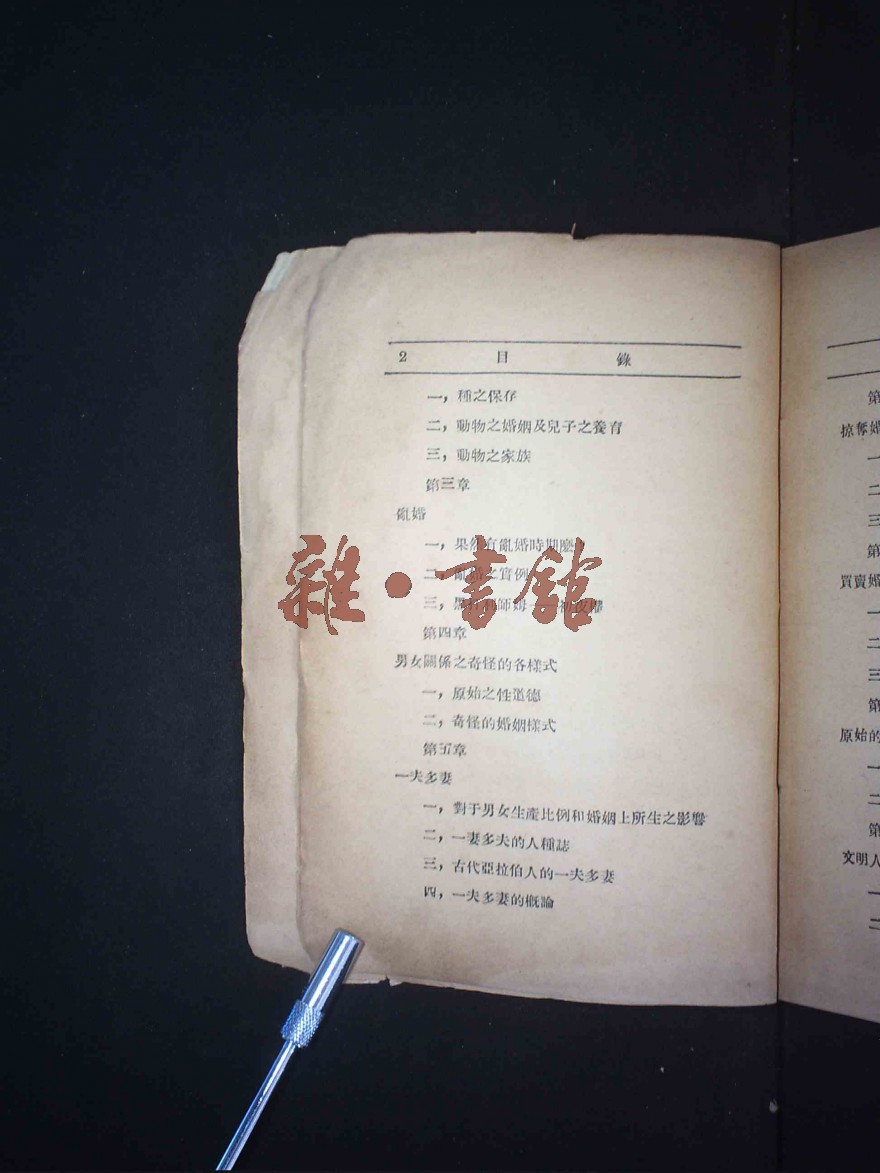 2 目 錄
一，種之保存
二，動物之婚姻及兒子之養育
三，動物之家族
第三章
亂婚
一，果然有亂婚時期麼
二，亂婚之實例
三，
第四章
男女關係之奇怪的各樣式
一，原始之性道德
二，奇怪的婚姻樣式
第五章
一夫多妻
一，對于男女生產比例和婚姻上所生之影響
二，一妻多夫的人種誌
三，古代亞拉伯人的一夫多妻
四，一夫多妻的概論
雜·書館
第
掠奪婚
一
二
三
第
買賣婚
一
二
三
第
原始的
一
二
第
文明人
一
二